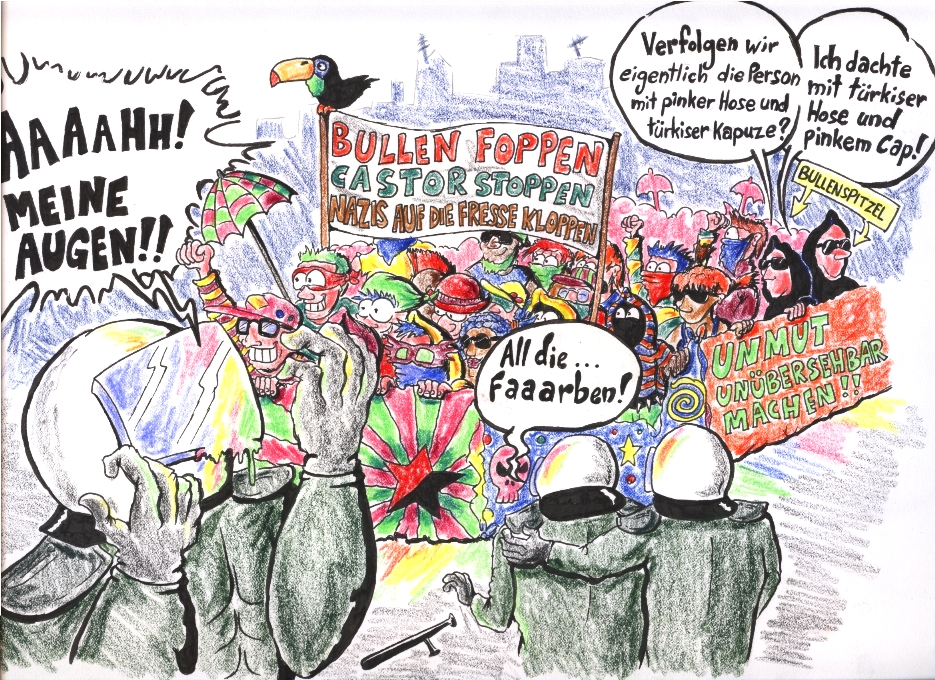 AAAAHH!
MEINE
AUGEN!!
BULLEN FOPPEN
CASTOR STOPPEN
NAZIS AUF DIE FRESSE KLOPPEN
Verfolgen wir
eigentlich die Person
mit pinker Hose und
türkiser Kapuze?
Ich dachte
mit türkiser
Hose und
pinkem Cap!
BULLENSPITZEL
All die...
Faaarben!
UNMUT
UNÜBERSEHBAR
MACHEN!!